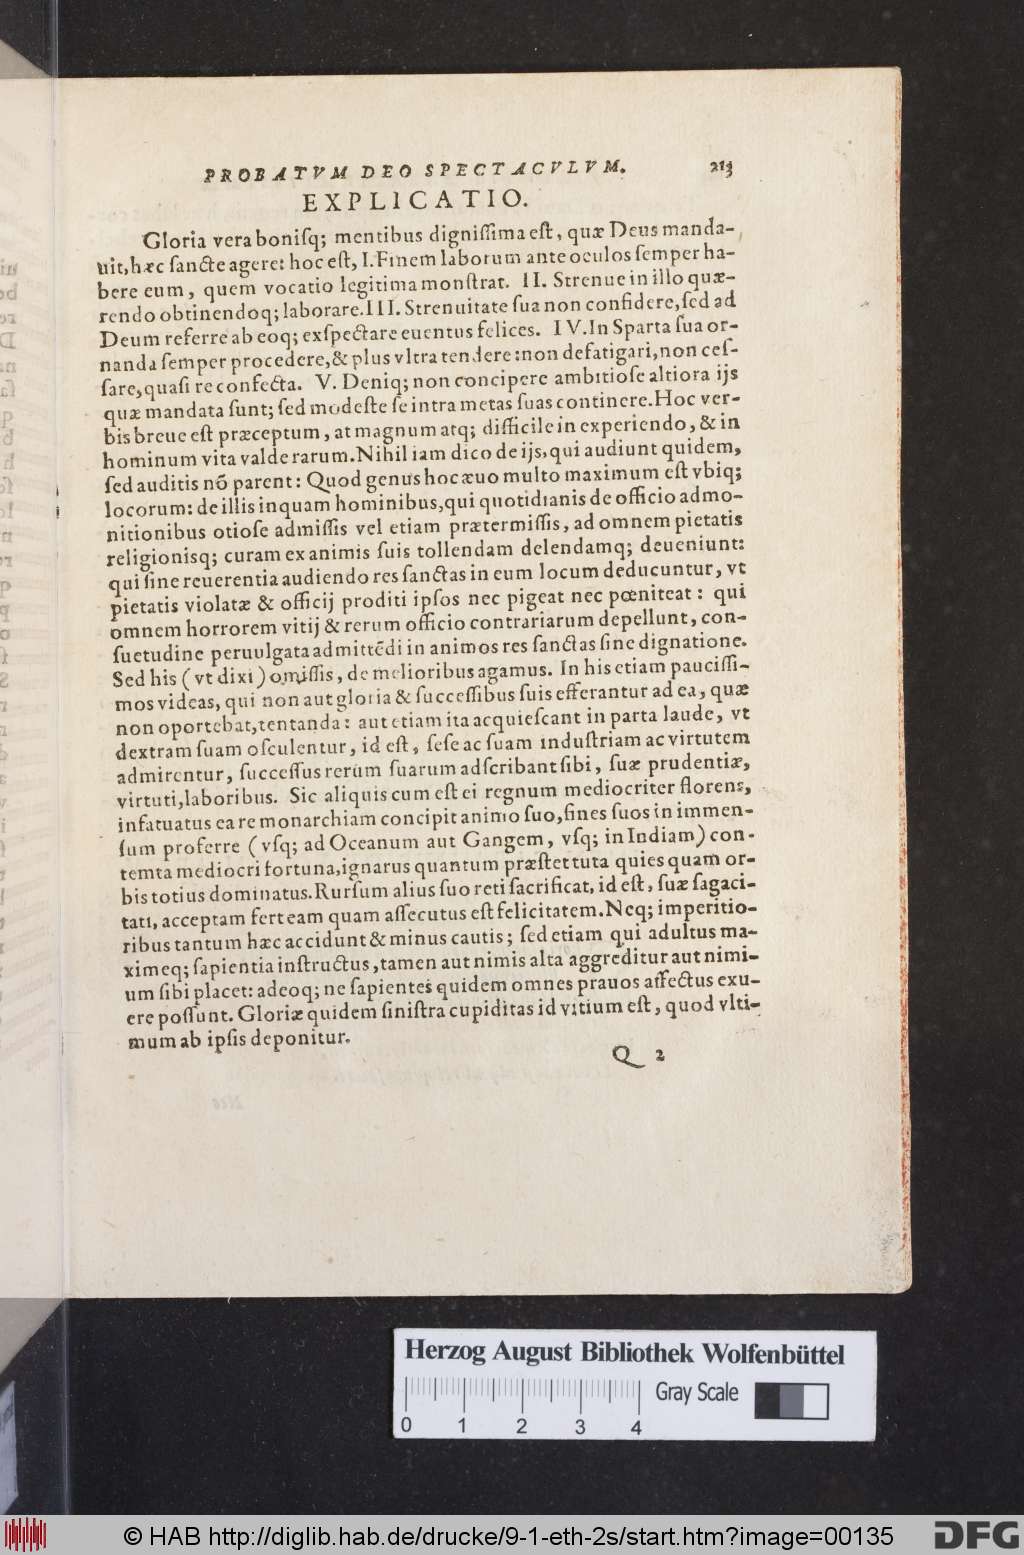 PROBATVM DEO SPECTACVLVM. 213
EXPLICATIO.
Gloria vera bonisq; mentibus dignissima est, quæ Deus manda-
uit, hæc sancte agere: hoc est, I. Finem laborum ante oculos semper ha-
bere eum, quem vocatio legitima monstrat. II. Strenue in illo quæ-
rendo obtinendoq; laborare. III. Strenuitate sua non confidere, sed ad
Deum referre ab eoq; exspectare euentus felices. IV. In Sparta sua or-
nanda semper procedere, & plus vltra tendere: non defatigari, non ces-
sare, quasi re confecta. V. Deniq; non concipere ambitiose altiora ijs
quæ mandata sunt; sed modeste se intra metas suas continere. Hoc ver-
bis breue est præceptum, at magnum atq; difficile in experiendo, & in
hominum vita valde rarum. Nihil iam dico de ijs, qui audiunt quidem,
sed auditis nō parent: Quod genus hoc æuo multo maximum est vbiq;
locorum: de illis inquam hominibus, qui quotidianis de officio admo-
nitionibus otiose admissis vel etiam prætermissis, ad omnem pietatis
religionisq; curam ex animis suis tollendam delendamq; deueniunt:
qui sine reuerentia audiendo res sanctas in eum locum deducuntur, vt
pietatis violatæ & officij proditi ipsos nec pigeat nec pœniteat: qui
omnem horrorem vitij & rerum officio contrariarum depellunt, con-
suetudine peruulgata admittēdi in animos res sanctas sine dignatione.
Sed his (vt dixi) omissis, de melioribus agamus. In his etiam paucissi-
mos videas, qui non aut gloria & successibus suis efferantur ad ea, quæ
non oportebat, tentanda: aut etiam ita acquiescant in parta laude, vt
dextram suam osculentur, id est, sese ac suam industriam ac virtutem
admirentur, successus rerum suarum adscribant sibi, suæ prudentiæ,
virtuti, laboribus. Sic aliquis cum est ei regnum mediocriter florens,
infatuatus ea re monarchiam concipit animo suo, fines suos in immen-
sum proferre (vsq; ad Oceanum aut Gangem, vsq; in Indiam) con-
temta mediocri fortuna, ignarus quantum præstet tuta quies quam or-
bis totius dominatus. Rursum alius suo reti sacrificat, id est, suæ sagaci-
tati, acceptam fert eam quam assecutus est felicitatem. Neq; imperitio-
ribus tantum hæc accidunt & minus cautis; sed etiam qui adultus ma-
ximeq; sapientia instructus, tamen aut nimis alta aggreditur aut nimi-
um sibi placet: adeoq; ne sapientes quidem omnes prauos affectus exu-
ere possunt. Gloriæ quidem sinistra cupiditas id vitium est, quod vlti-
mum ab ipsis deponitur.
Q 2
Herzog August Bibliothek Wolfenbüttel
Gray Scale
0 1 2 3 4
© HAB http://diglib.hab.de/drucke/9-1-eth-2s/start.htm?image=00135
DFG